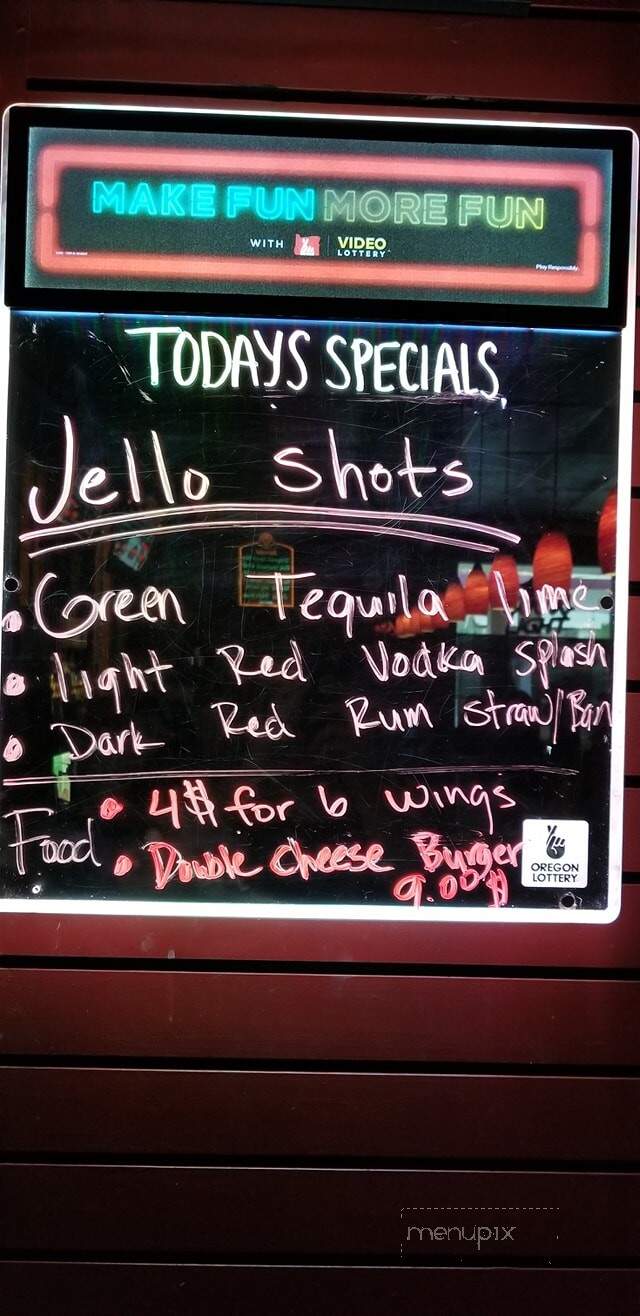 MAKE FUN MORE FUN
WITH VIDEO LOTTERY
Play Responsibly.
TODAYS SPECIALS
Jello Shots
• Green Tequila lime
• light Red Vodka Splash
• Dark Red Rum Straw/Ban
Food • 4$ for 6 wings
• Double Cheese Burger
9.00$
OREGON
LOTTERY
menupix